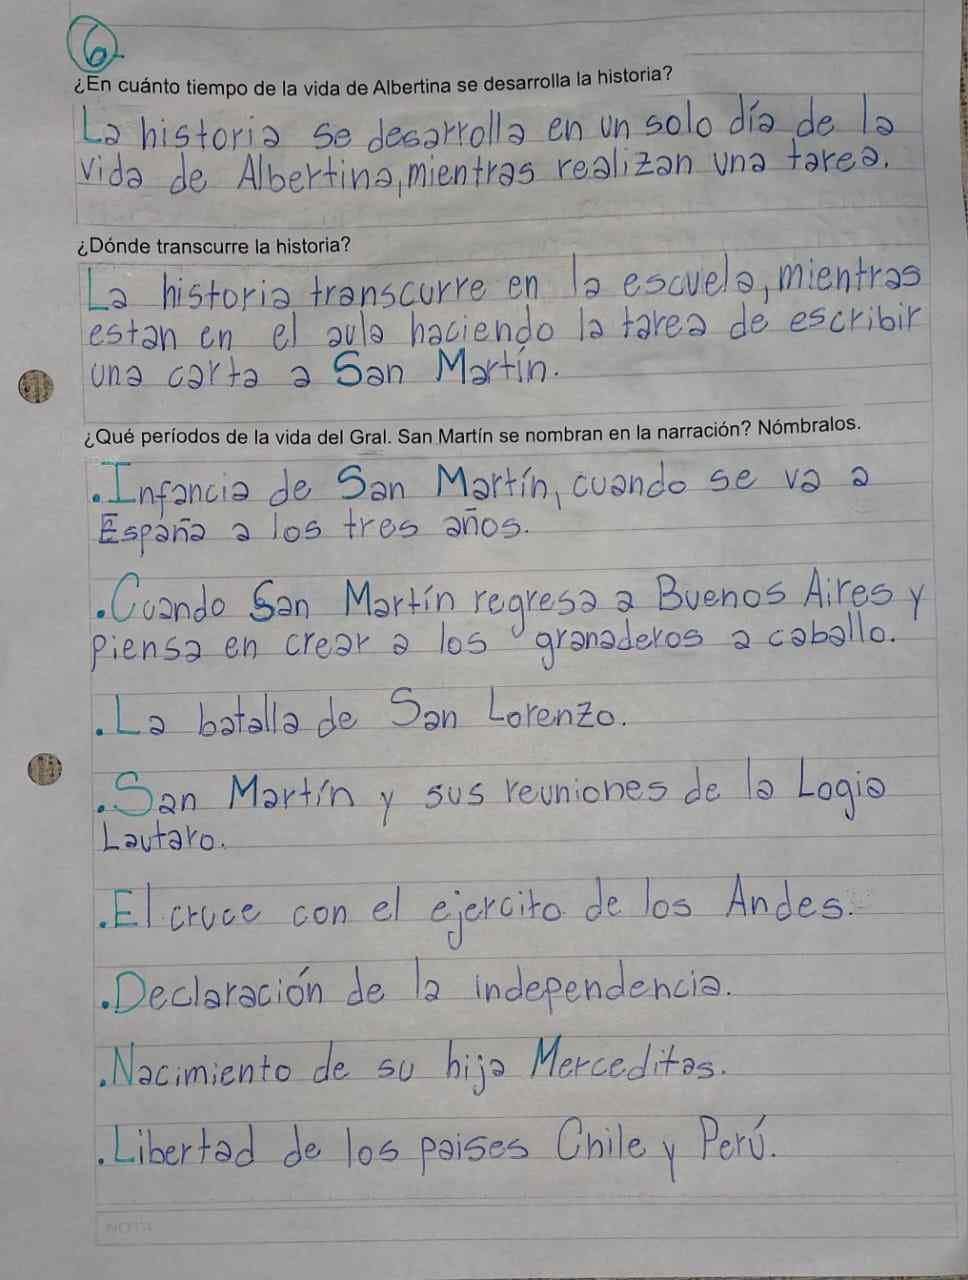 6
¿En cuánto tiempo de la vida de Albertina se desarrolla la historia?
La historia se desarrolla en un solo día de la
vida de Albertina, mientras realizan una tarea.
¿Dónde transcurre la historia?
La historia transcurre en la escuela, mientras
estan en el aula haciendo la tarea de escribir
una carta a San Martín.
¿Qué períodos de la vida del Gral. San Martín se nombran en la narración? Nómbralos.
.Infancia de San Martín, cuando se va a
España a los tres años.
.Cuando San Martín regresa a Buenos Aires y
piensa en crear a los granaderos a caballo.
.La batalla de San Lorenzo.
.San Martín y sus reuniones de la Logia
Lautaro.
.El cruce con el ejercito de los Andes.
.Declaración de la independencia.
.Nacimiento de su hija Merceditas.
.Libertad de los paises Chile y Perú.
NOTA